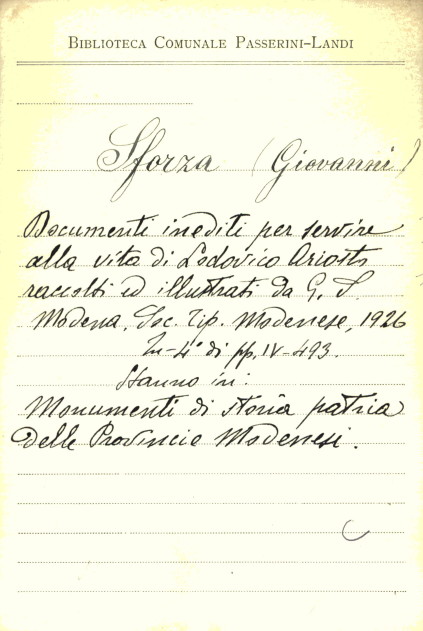 BIBLIOTECA COMUNALE PASSERINI-LANDI
Sforza (Giovanni)
Documenti inediti per servire
alla vita di Lodovico Ariosto
raccolti ed illustrati da G. S.
Modena, Soc. Tip. Modenese, 1926
In-4° di pp. IV-493.
Stanno in:
Monumenti di storia patria
delle Provincie Modenesi.